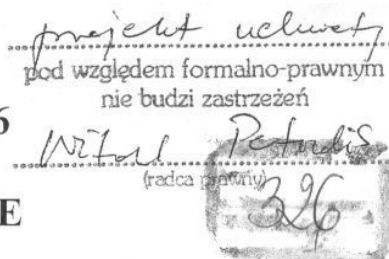 projekt uchwały
pod względem formalno-prawnym
nie budzi zastrzeżeń
6
Witold
(radca prawny)
326
E